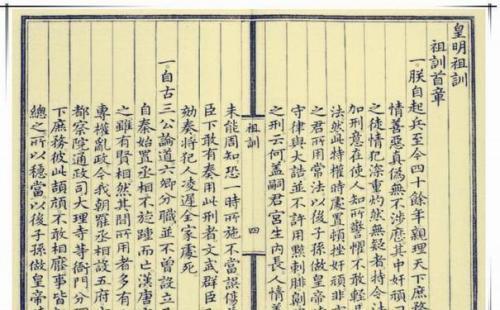 皇明祖訓
祖訓首章
一朕自起兵至今四十餘年親理天下庶務
情善惡真偽無不涉歷其中奸頑
之徒情犯深重灼然無疑者特令法
加刑意在使人知所警懼不敢輕
法然此特權時處置頓挫奸頑非
之君所用常法以後子孫做皇帝
守律與大誥並不許用黥刺腓劓
之刑云何蓋嗣君宮生內長人情善
祖訓
四
未能周知恐一時所施不當誤傷
臣下敢有奏用此刑者文武群臣
劾奏將犯人凌遲全家處死
一自古三公論道六卿分職並不曾設立
自秦始置丞相不旋踵而亡漢唐
之雖有賢相然其間所用者多有
專權亂政今我朝罷丞相設五府
都察院通政司大理寺等衙門分
下庶務彼此頡頏不敢相壓事皆
總之所以穩當以後子孫做皇帝